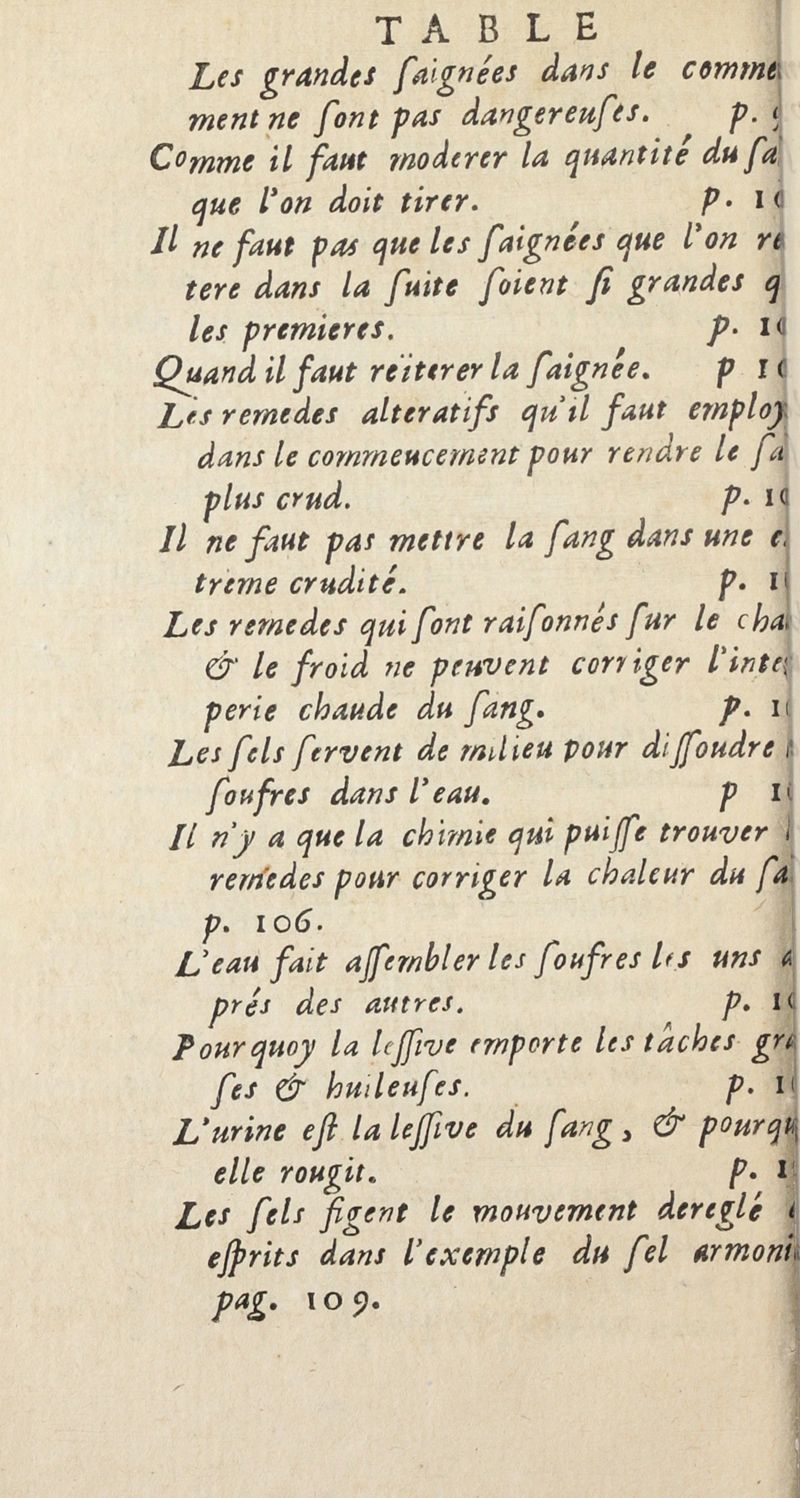 TABLE
Les grandes ſaignées dans le comme
ment ne ſont pas dangereuſes. p.
Comme il faut moderer la quantité du ſa
que l'on doit tirer. p. 1
Il ne faut pas que les ſaignées que l'on re
tere dans la ſuite ſoient ſi grandes q
les premieres. p. 1
Quand il faut reïterer la ſaignée. p 1
Les remedes alteratifs qu'il faut employ
dans le commeucement pour rendre le ſa
plus crud. p. 1
Il ne faut pas mettre la ſang dans une e
treme crudité. p. 1
Les remedes qui ſont raiſonnés ſur le cha
& le froid ne peuvent corriger l'inte
perie chaude du ſang. p. 1
Les ſels ſervent de milieu pour diſſoudre
ſoufres dans l'eau. p 1
Il n'y a que la chimie qui puiſſe trouver
remedes pour corriger la chaleur du ſa
p. 106.
L'eau fait aſſembler les ſoufres les uns a
prés des autres. p. 1
Pourquoy la leſſive emporte les tâches gra
ſes & huileuſes. p. 1
L'urine eſt la leſſive du ſang, & pourqu
elle rougit. p. 1
Les ſels figent le mouvement dereglé
eſprits dans l'exemple du ſel armoni
pag. 109.